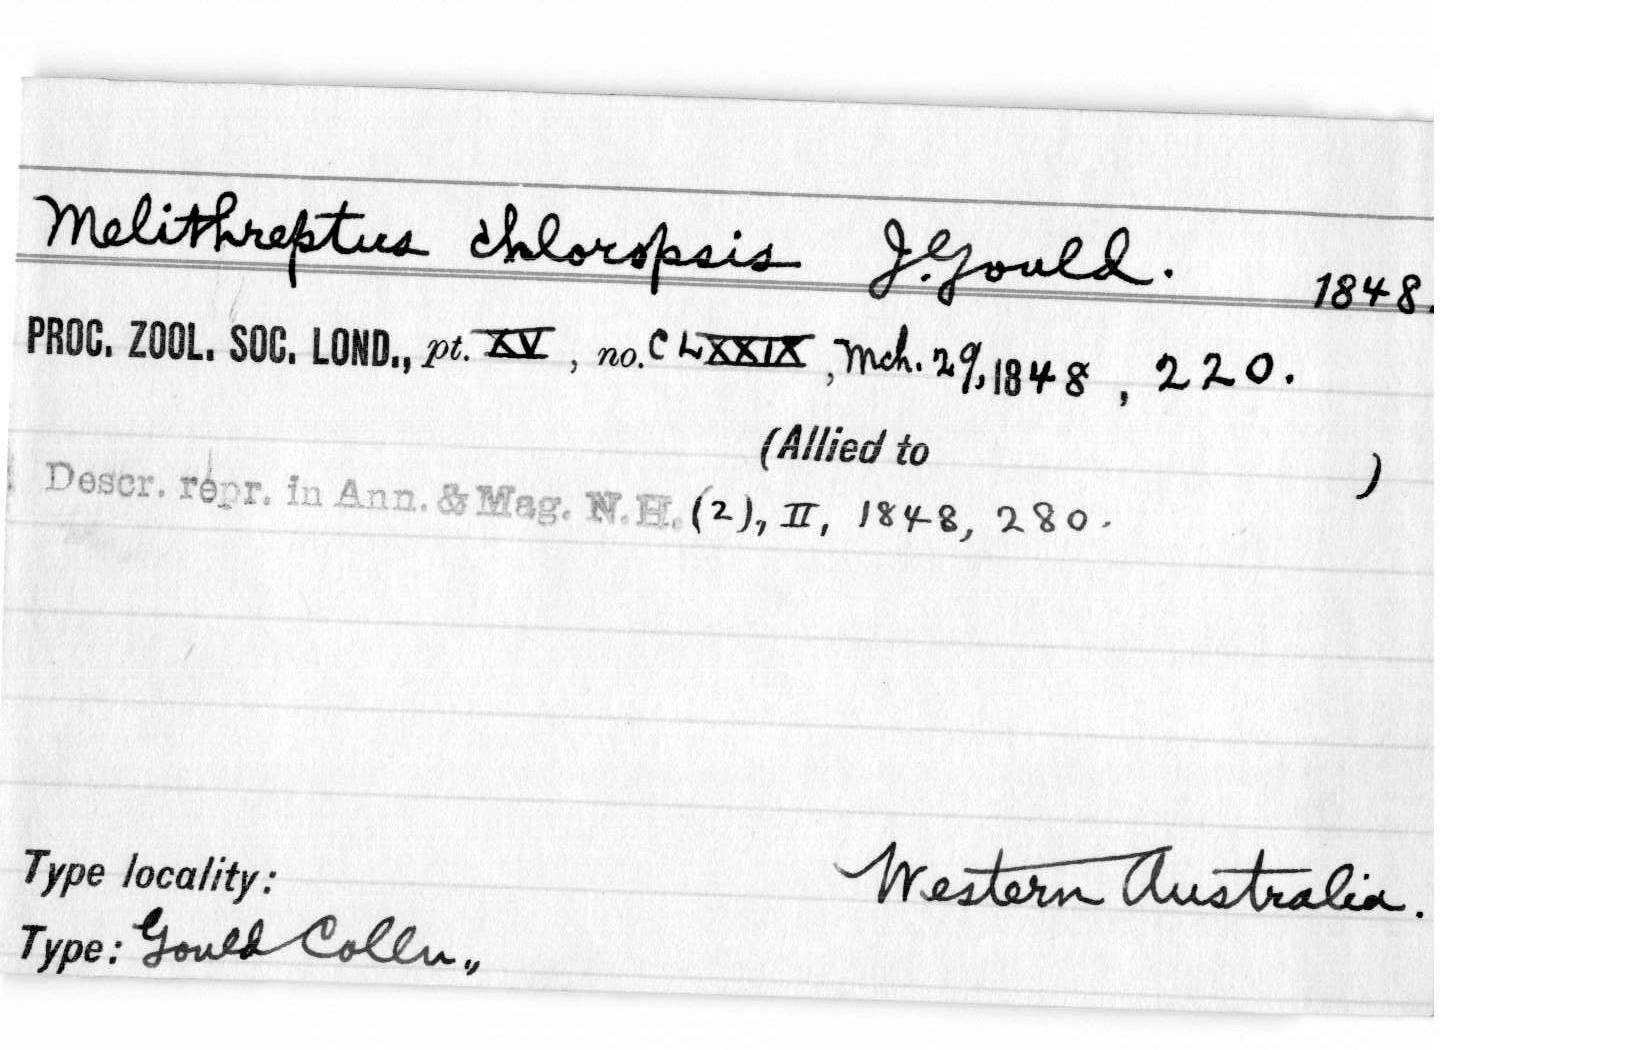 Melithreptus chloropsis J. Gould. 1848.
PROC. ZOOL. SOC. LOND., pt. XV, no. CLXXIX, Mch. 29, 1848, 220.
(Allied to )
Descr. repr. in Ann. & Mag. N.H. (2), II, 1848, 280.
Type locality: Western Australia.
Type: Gould Colln.,